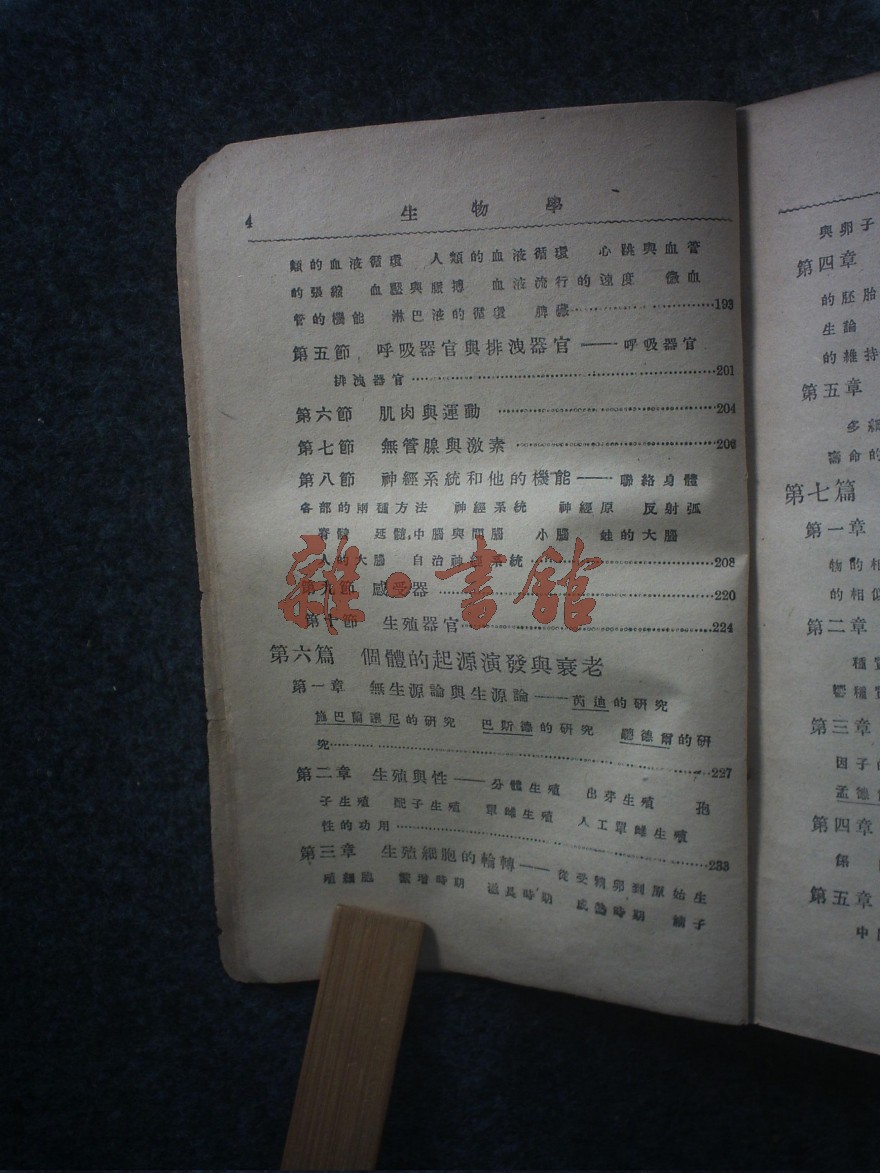 4 生物學
類的血液循環 人類的血液循環 心跳與血管
的張縮 血壓與脈搏 血液流行的速度 微血
管的機能 淋巴液的循環 脾臟……193
第五節 呼吸器官與排洩器官——呼吸器官
排洩器官……201
第六節 肌肉與運動……204
第七節 無管腺與激素……206
第八節 神經系統和他的機能——聯絡身體
各部的兩種方法 神經系統 神經原 反射弧
脊髓 延髓,中腦與間腦 小腦 蛙的大腦
人的大腦 自治神經系統……208
第九節 感受器……220
第十節 生殖器官……224
第六篇 個體的起源演發與衰老
第一章 無生源論與生源論——芮迪的研究
施巴蘭讓尼的研究 巴斯德的研究 聽德爾的研
究……227
第二章 生殖與性——分體生殖 出芽生殖 孢
子生殖 配子生殖 單雌生殖 人工單雌生殖
性的功用……233
第三章 生殖細胞的輪轉——從受精卵到原始生
殖細胞 繁增時期 滋長時期 成熟時期 精子
與卵子
第四章
的胚胎
生論
的維持
第五章
多
壽命的
第七篇
第一章
物的相
的相似
第二章
種質
第三章
因子的
孟德
第四章
係
第五章
中
雜·書館